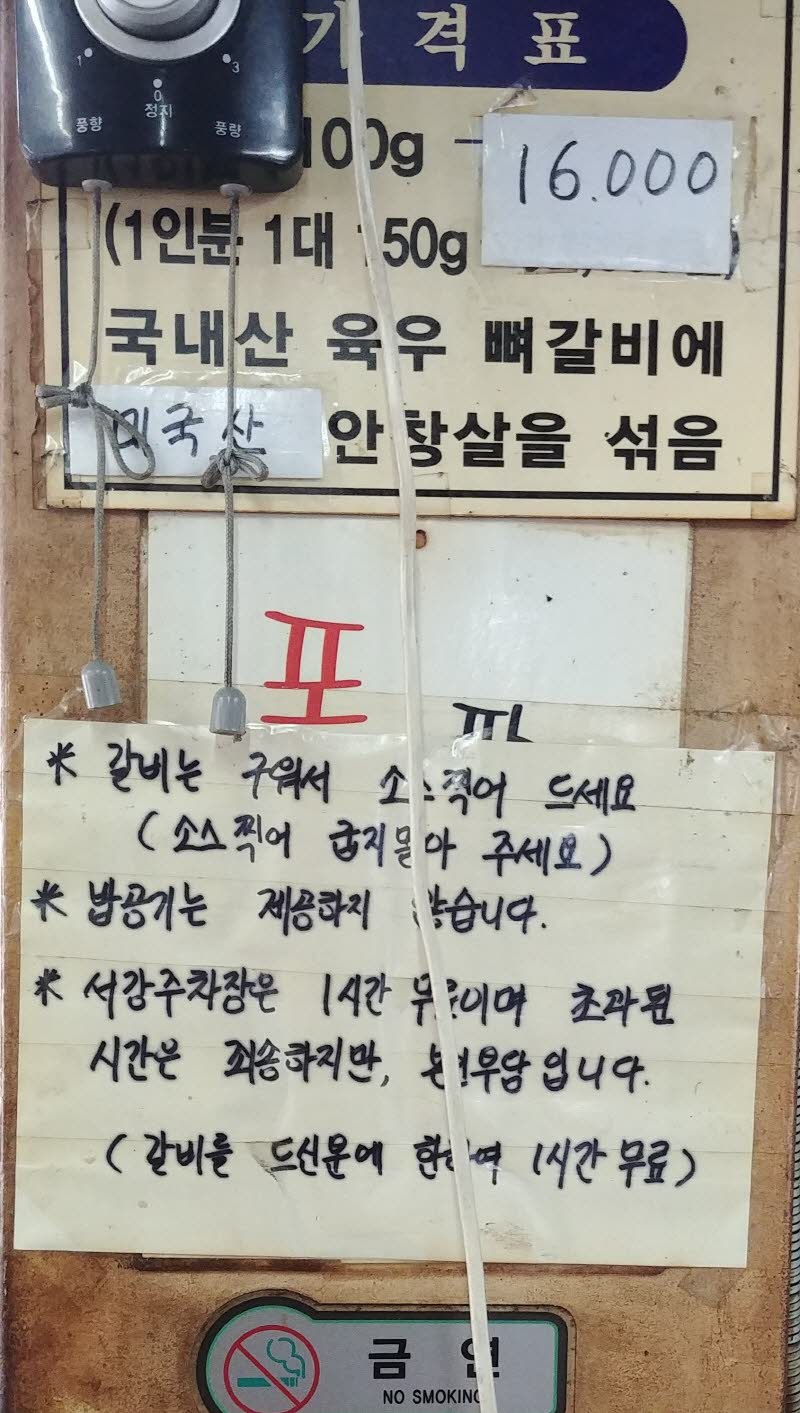 가 격 표
1 3
0
정지
풍향 풍량
100g - 16.000
(1인분 1대 150g
국내산 육우 뼈갈비에
미국산 안창살을 섞음
포
* 갈비는 구워서 소스찍어 드세요
(소스찍어 굽지말아 주세요)
* 밥공기는 제공하지 않습니다.
* 서강주차장은 1시간 무료이며 초과된
시간은 죄송하지만, 본인부담입니다.
(갈비를 드신분에 한하여 1시간 무료)
금 연
NO SMOKING